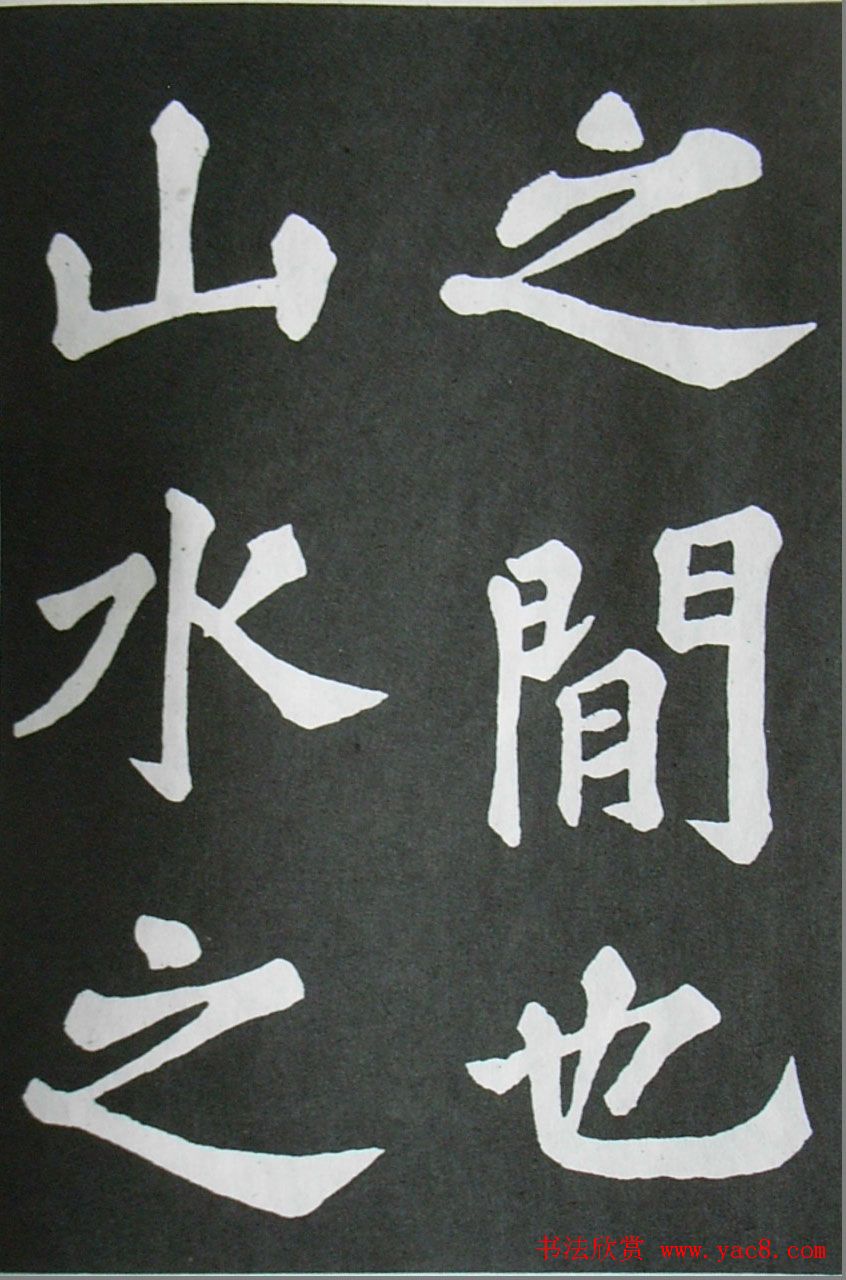 之閒也
山水之
书法欣赏 www.yac8.com